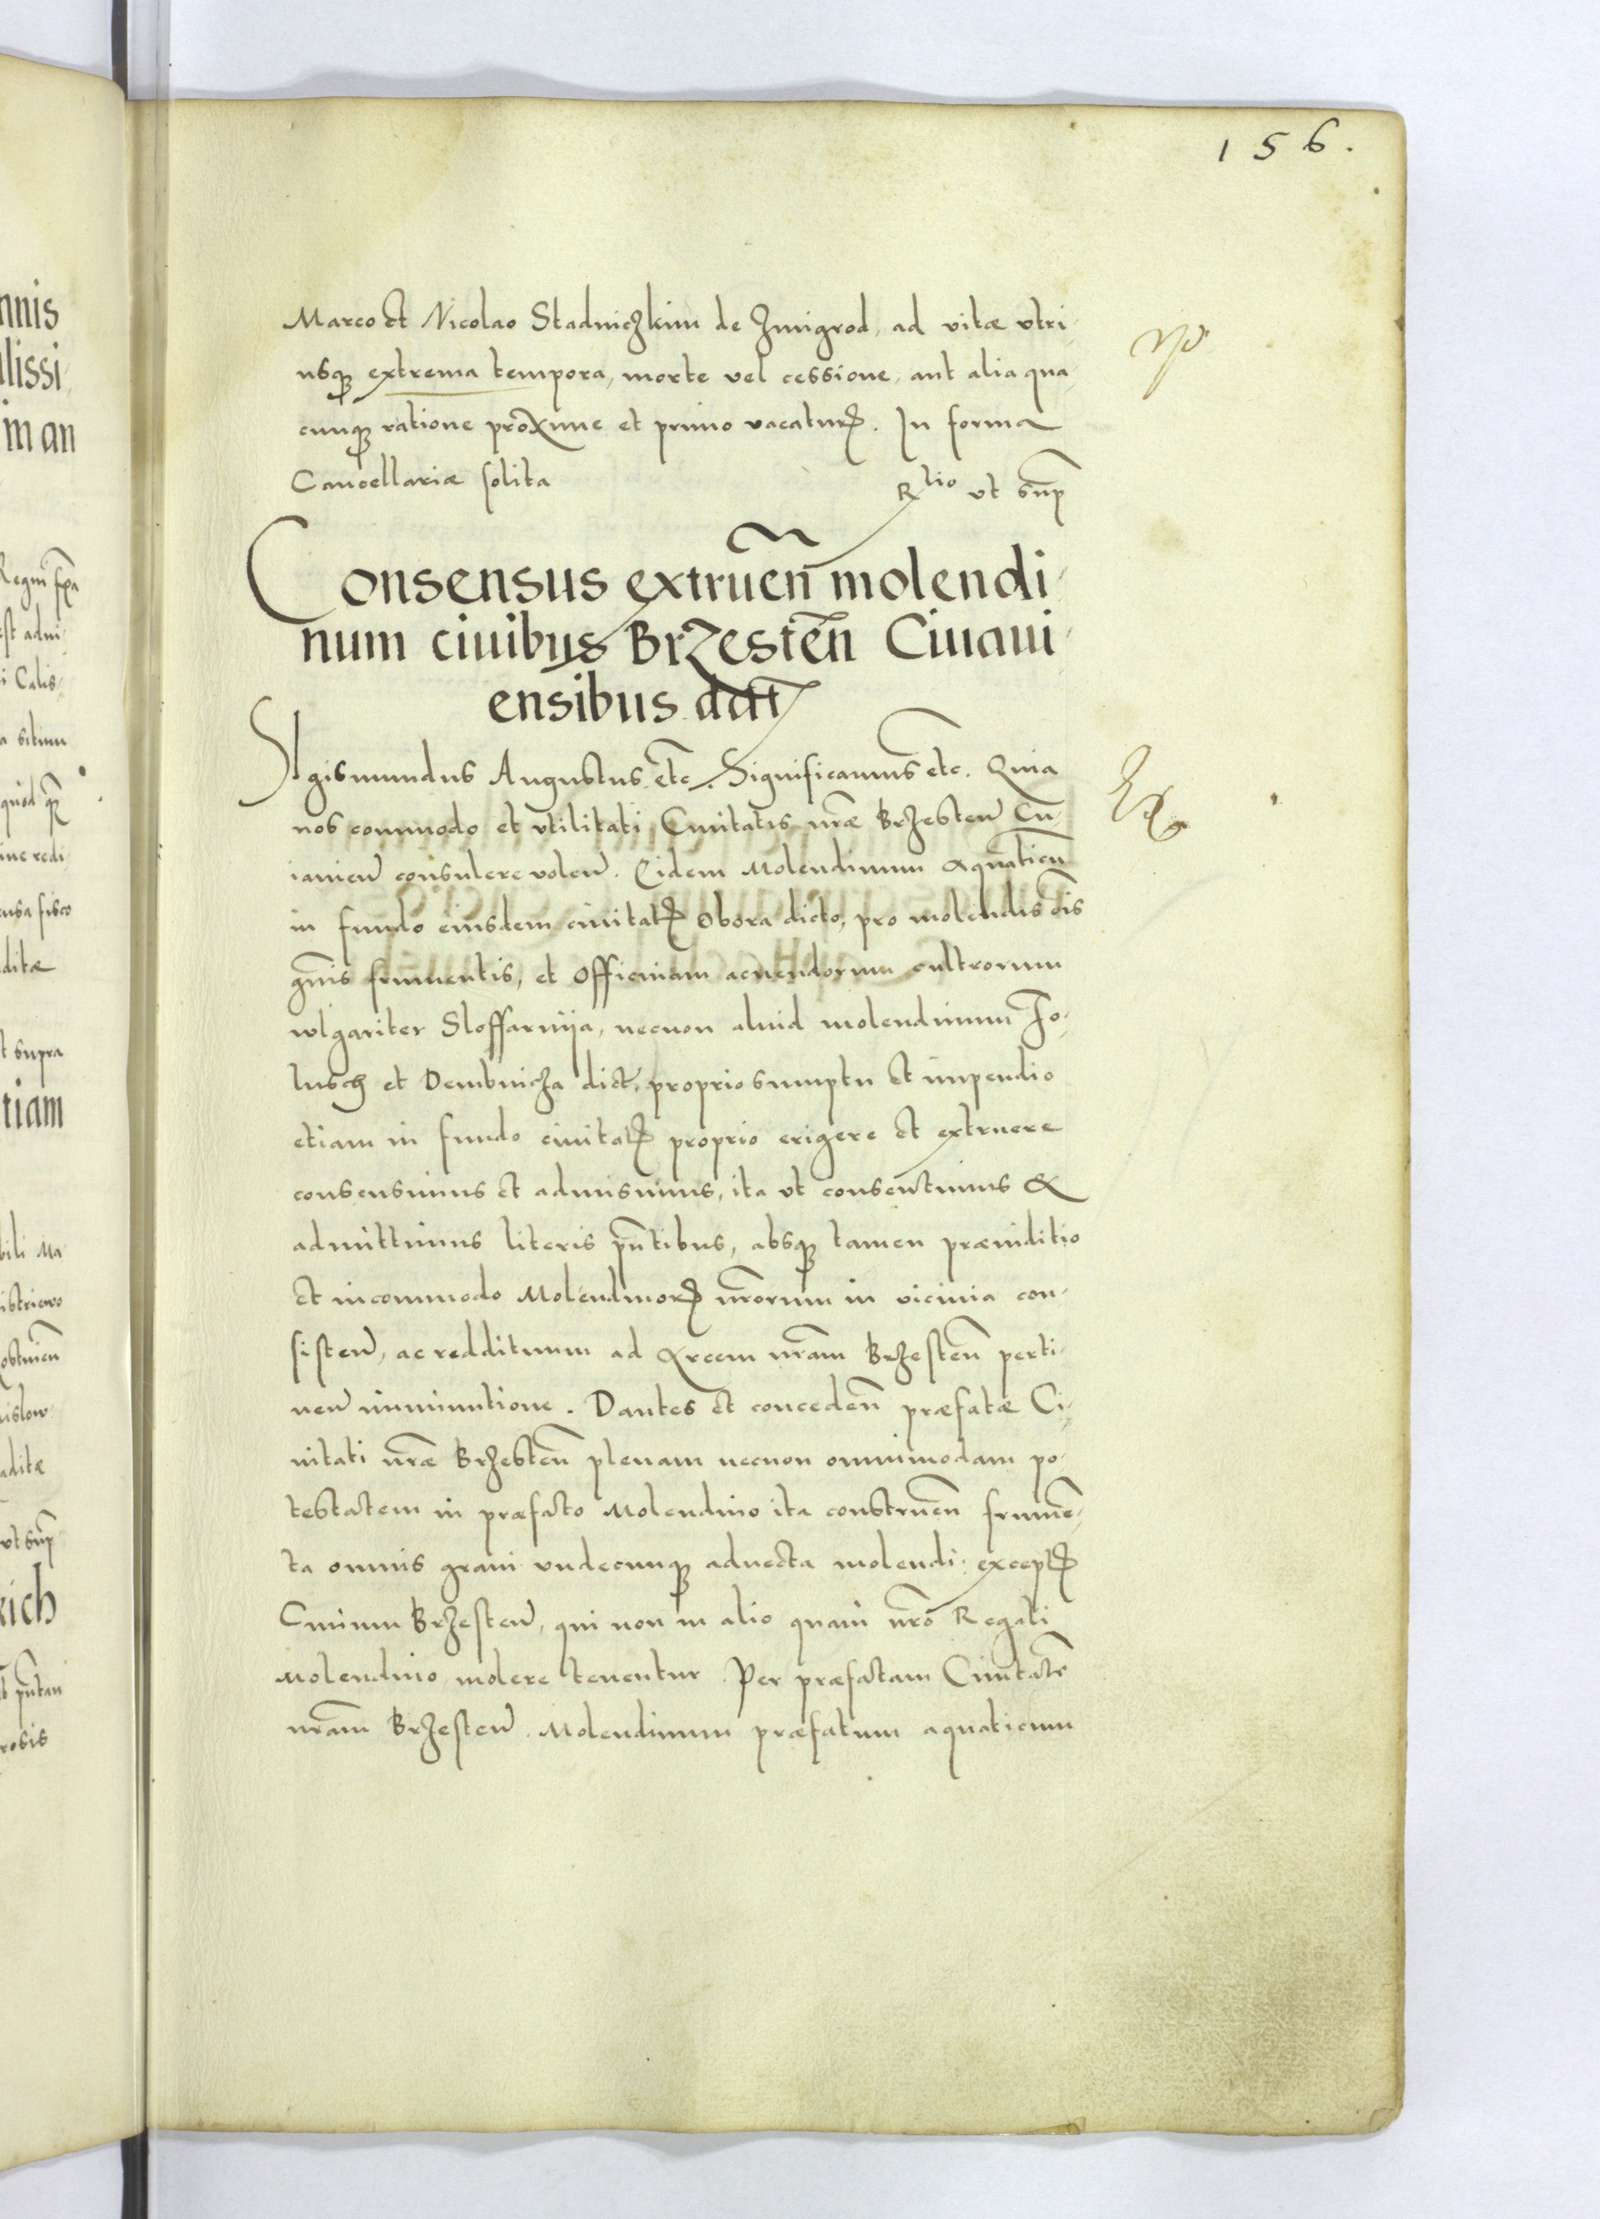 156.
Marco et Nicolao Stadniczkim de Zmigrod, ad vitæ vtri,
usqꝫ extrema tempora, morte vel cessione, aut alia qua,
cunqꝫ ratione proxime et primo vacaturꝭ. In forma
Cancellariæ solita
Rtio vt sup̄
Consensus extruen̄ molendi,
num ciuibus Brzesten̄ Ciuaui,
ensibus dat̄
Sigismundus Augustus etc̄. Significamus etc. Quia
nos commodo et vtilitati Ciuitatis nr̄æ Brzesten̄ Cu,
iauien̄ consulere volen̄. Eidem Molendinum aquaticū
in fundo eiusdem ciuitatꝭ Obora dicto, pro molendis oīs
gn̄is frumentis, et Officinam acuendorum cultrorum
wlgariter Sloffarnija, necnon aliud molendinum To,
lusch et Dembnicza dict̄, proprio sumptu et impendio
etiam in fundo ciuitatꝭ proprio erigere et extruere
consensimus et admisimus, ita vt consentimus &
admittimus literis pn̄tibus, absqꝫ tamen præiuditio
et incommodo Molendinorꝭ nr̄orum in vicinia con,
sisten̄, ac reddituum ad Arcem nr̄am Brzesten̄ perti,
nen̄ imminutione. Dantes et conceden̄ præfatæ Ci,
uitati nr̄æ Brzesten̄ plenam necnon omnimodam po,
testatem in præfato Molendino ita construen̄ frumē,
ta omnis grani vndecunqꝫ aduecta molendi: exceptꝭ
Ciuium Brzesten̄, qui non in alio quam nr̄o Regali
Molendino molere tenentur. Per præfatam Ciuitatē
nr̄am Brzesten̄. Molendinum præfatum aquaticum